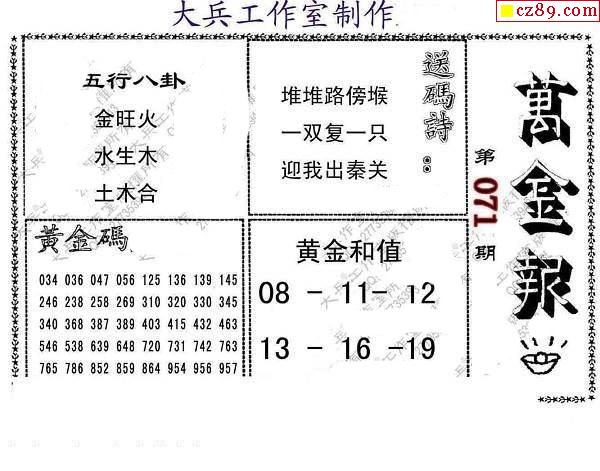 大兵工作室制作
cz89.com
五行八卦
金旺火
水生木
土木合
送碼詩：
堆堆路傍堠
一双复一只
迎我出秦关
萬金報
第071期
黃金碼
034 036 047 056 125 136 139 145
246 238 258 269 310 320 330 345
340 368 387 389 403 415 432 463
546 538 639 648 720 731 742 763
765 786 852 859 864 954 956 957
黄金和值
08 - 11- 12
13 - 16 -19